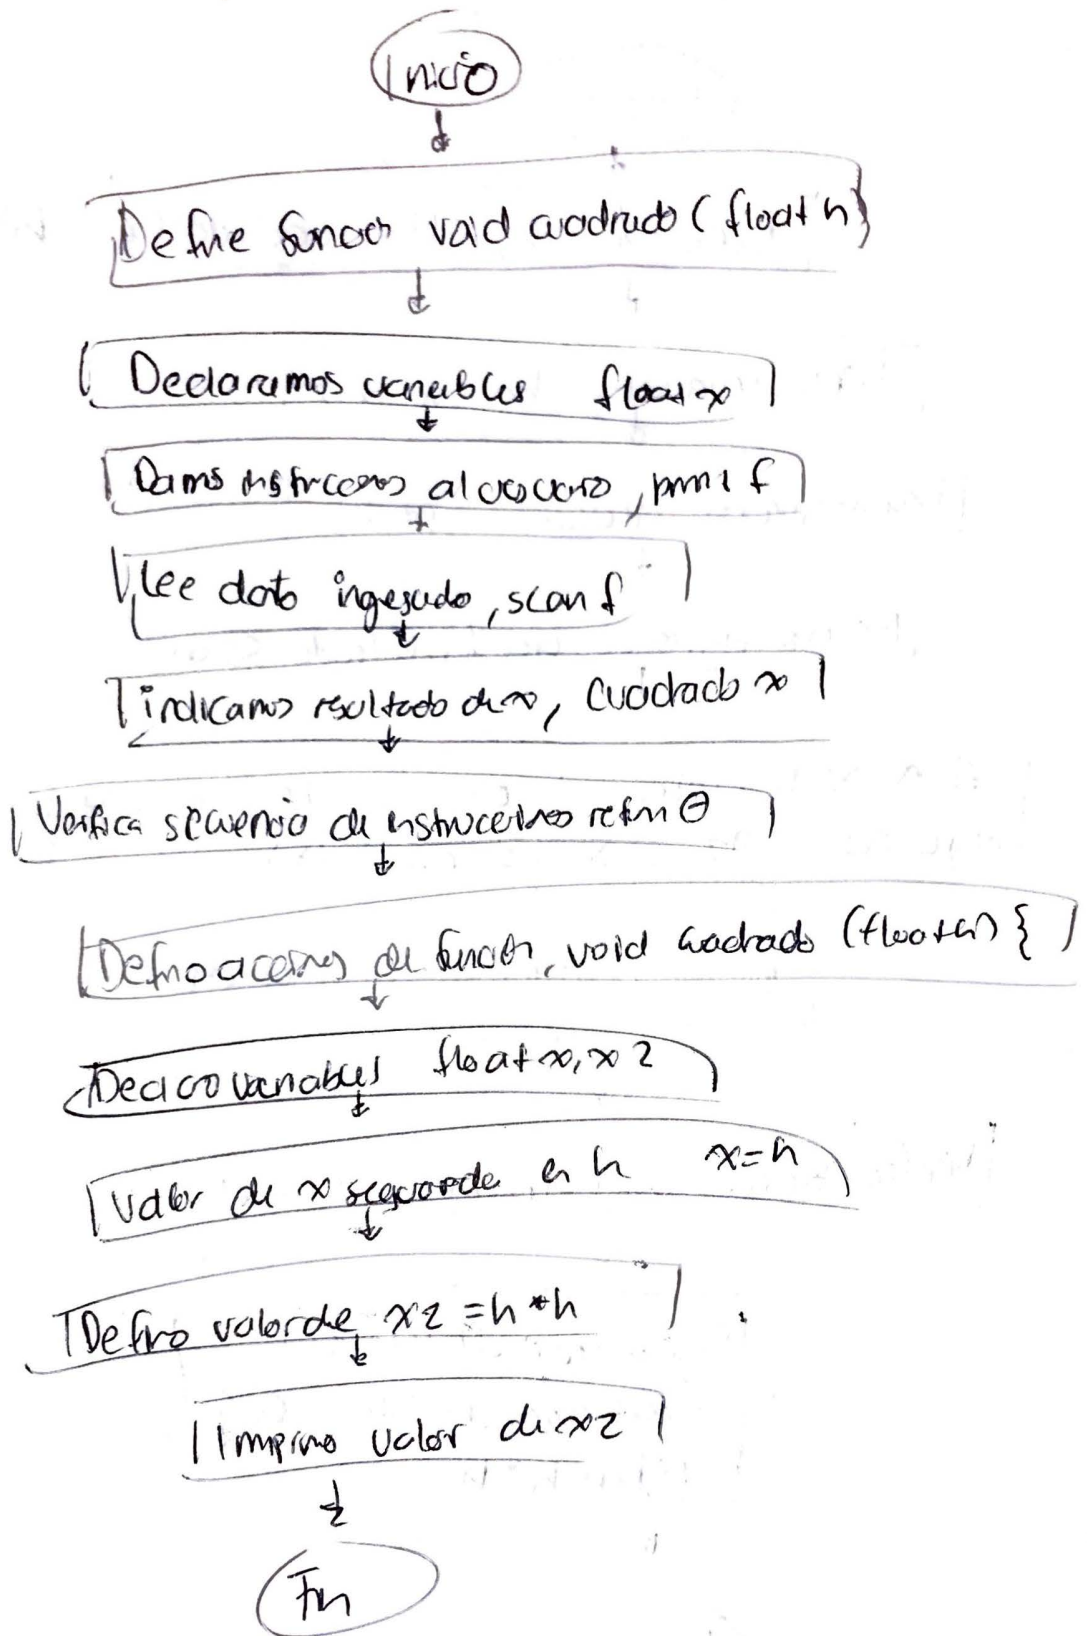 Inicio
Define funcion void cuadrado (float h)
Declaramos variables float x
Damos instrucciones al usuario, printf
Lee dato ingresado, scanf
indicamos resultado de x, cuadrado x
Verifica secuencia de instrucciones return 0
Defino acciones de funcion, void cuadrado (float h) {
Declaro variables float x, x2
Valor de x se guarda en h x=h
Defino valor de x2 = h * h
Imprimo valor de x2
Fin